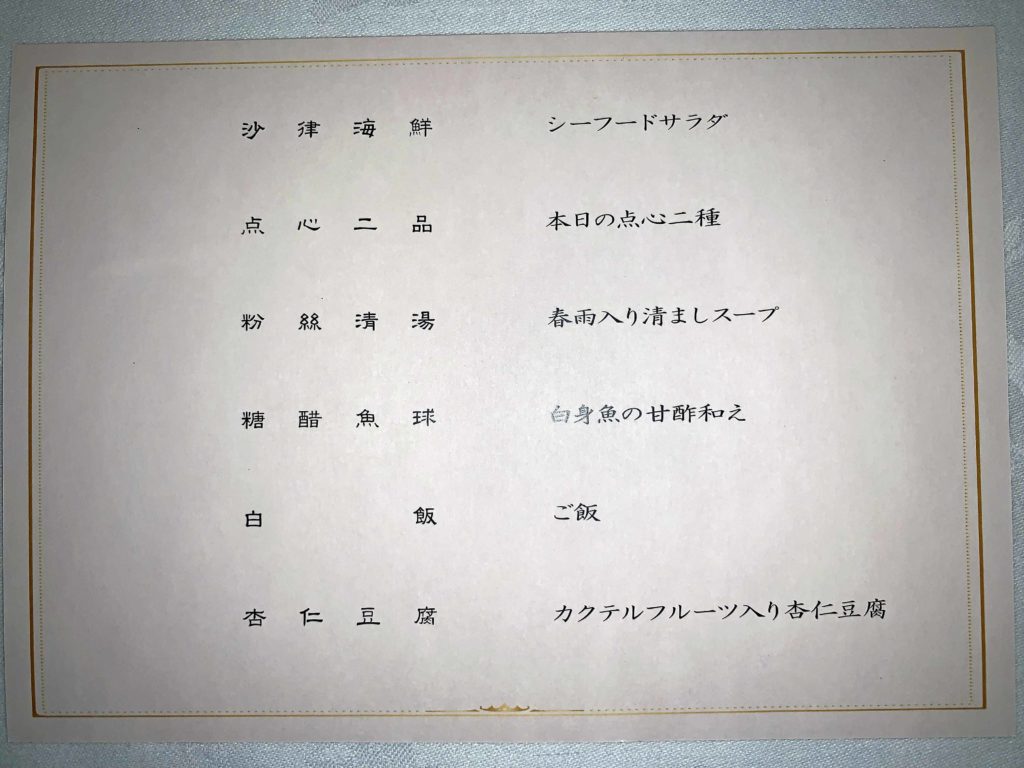 沙律海鮮 シーフードサラダ
点心二品 本日の点心二種
粉絲清湯 春雨入り清ましスープ
糖醋魚球 白身魚の甘酢和え
白飯 ご飯
杏仁豆腐 カクテルフルーツ入り杏仁豆腐